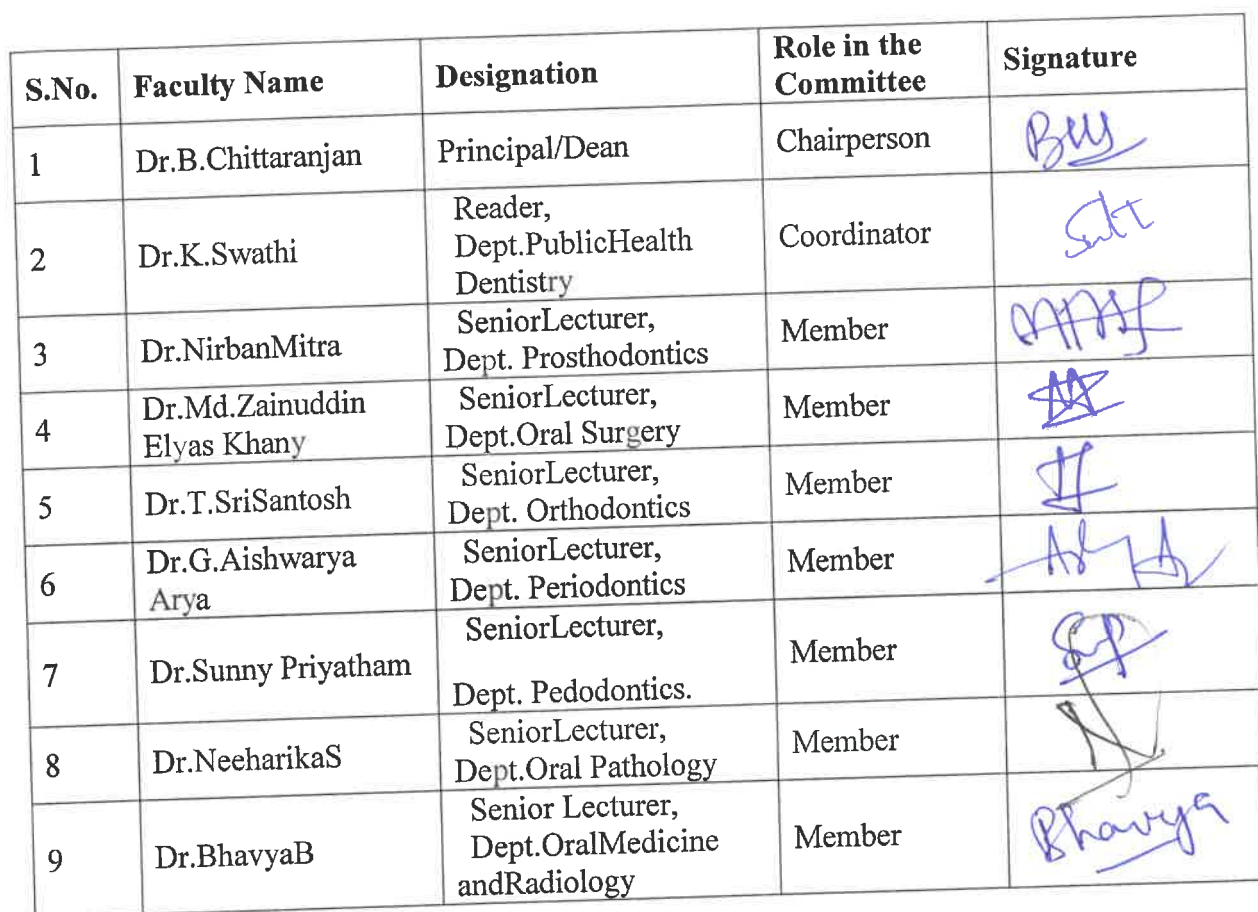 S.No. Faculty Name Designation Role in the Committee Signature
1 Dr.B.Chittaranjan Principal/Dean Chairperson
2 Dr.K.Swathi Reader,
Dept.PublicHealth
Dentistry Coordinator
3 Dr.NirbanMitra SeniorLecturer,
Dept. Prosthodontics Member
4 Dr.Md.Zainuddin
Elyas Khany SeniorLecturer,
Dept.Oral Surgery Member
5 Dr.T.SriSantosh SeniorLecturer,
Dept. Orthodontics Member
6 Dr.G.Aishwarya
Arya SeniorLecturer,
Dept. Periodontics Member
7 Dr.Sunny Priyatham SeniorLecturer,
Dept. Pedodontics. Member
8 Dr.NeeharikaS SeniorLecturer,
Dept.Oral Pathology Member
9 Dr.BhavyaB Senior Lecturer,
Dept.OralMedicine
andRadiology Member Bhavya